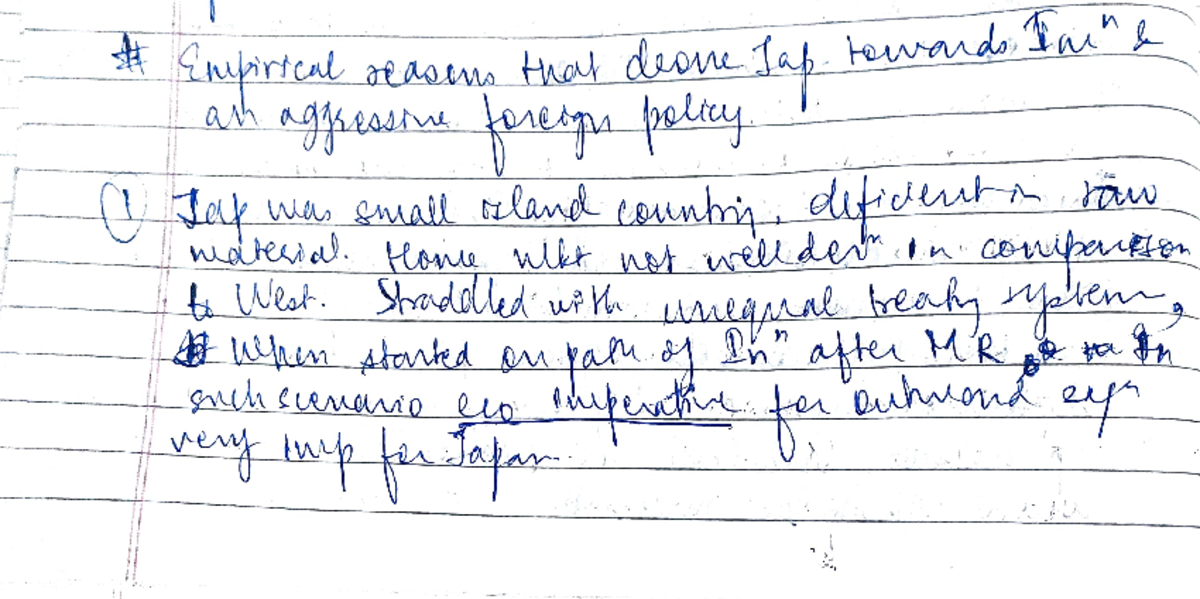 # Empirical reasons that drove Jap. towards Imⁿ &
an aggressive foreign policy.
① Jap was small island country, deficient in raw
material. Home mkt not well devⁿ in comparison
to West. Straddled with unequal treaty system,
When started on path of Inⁿ after MR In
such scenario eco imperative for outward expⁿ
very imp for Japan.